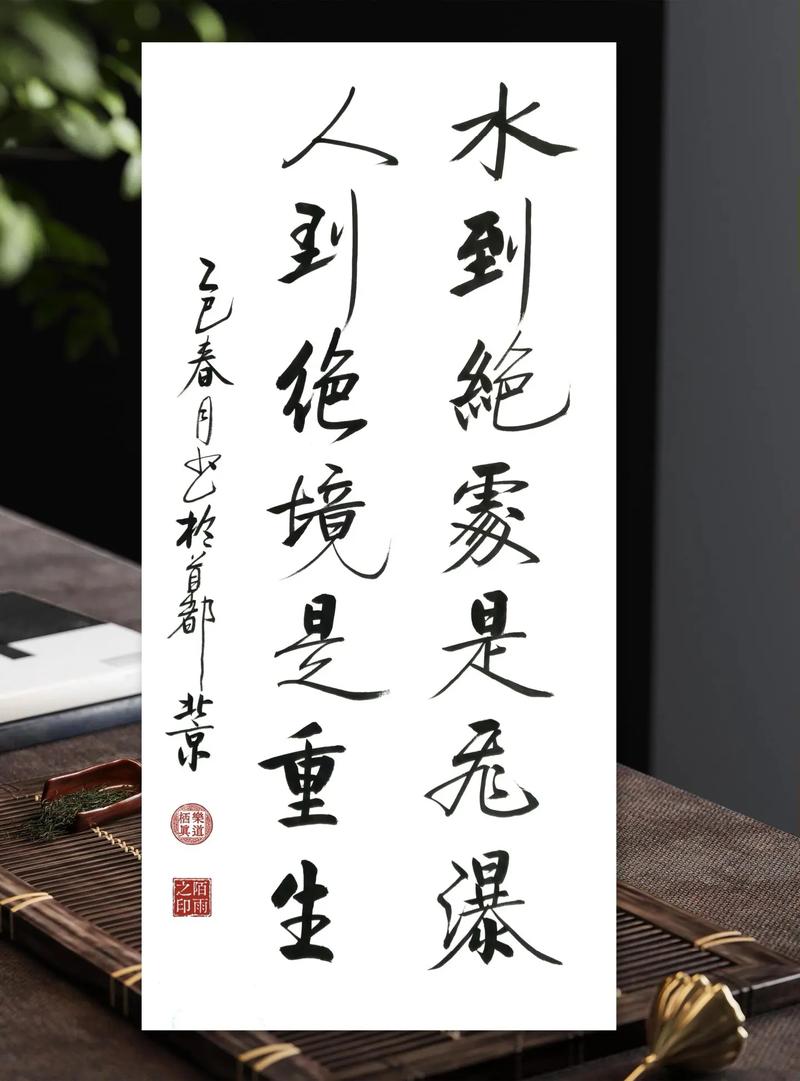 水到絕處是飛瀑
人到绝境是重生
乙巳春月书於首都北京
樂道栖真
陌雨之印